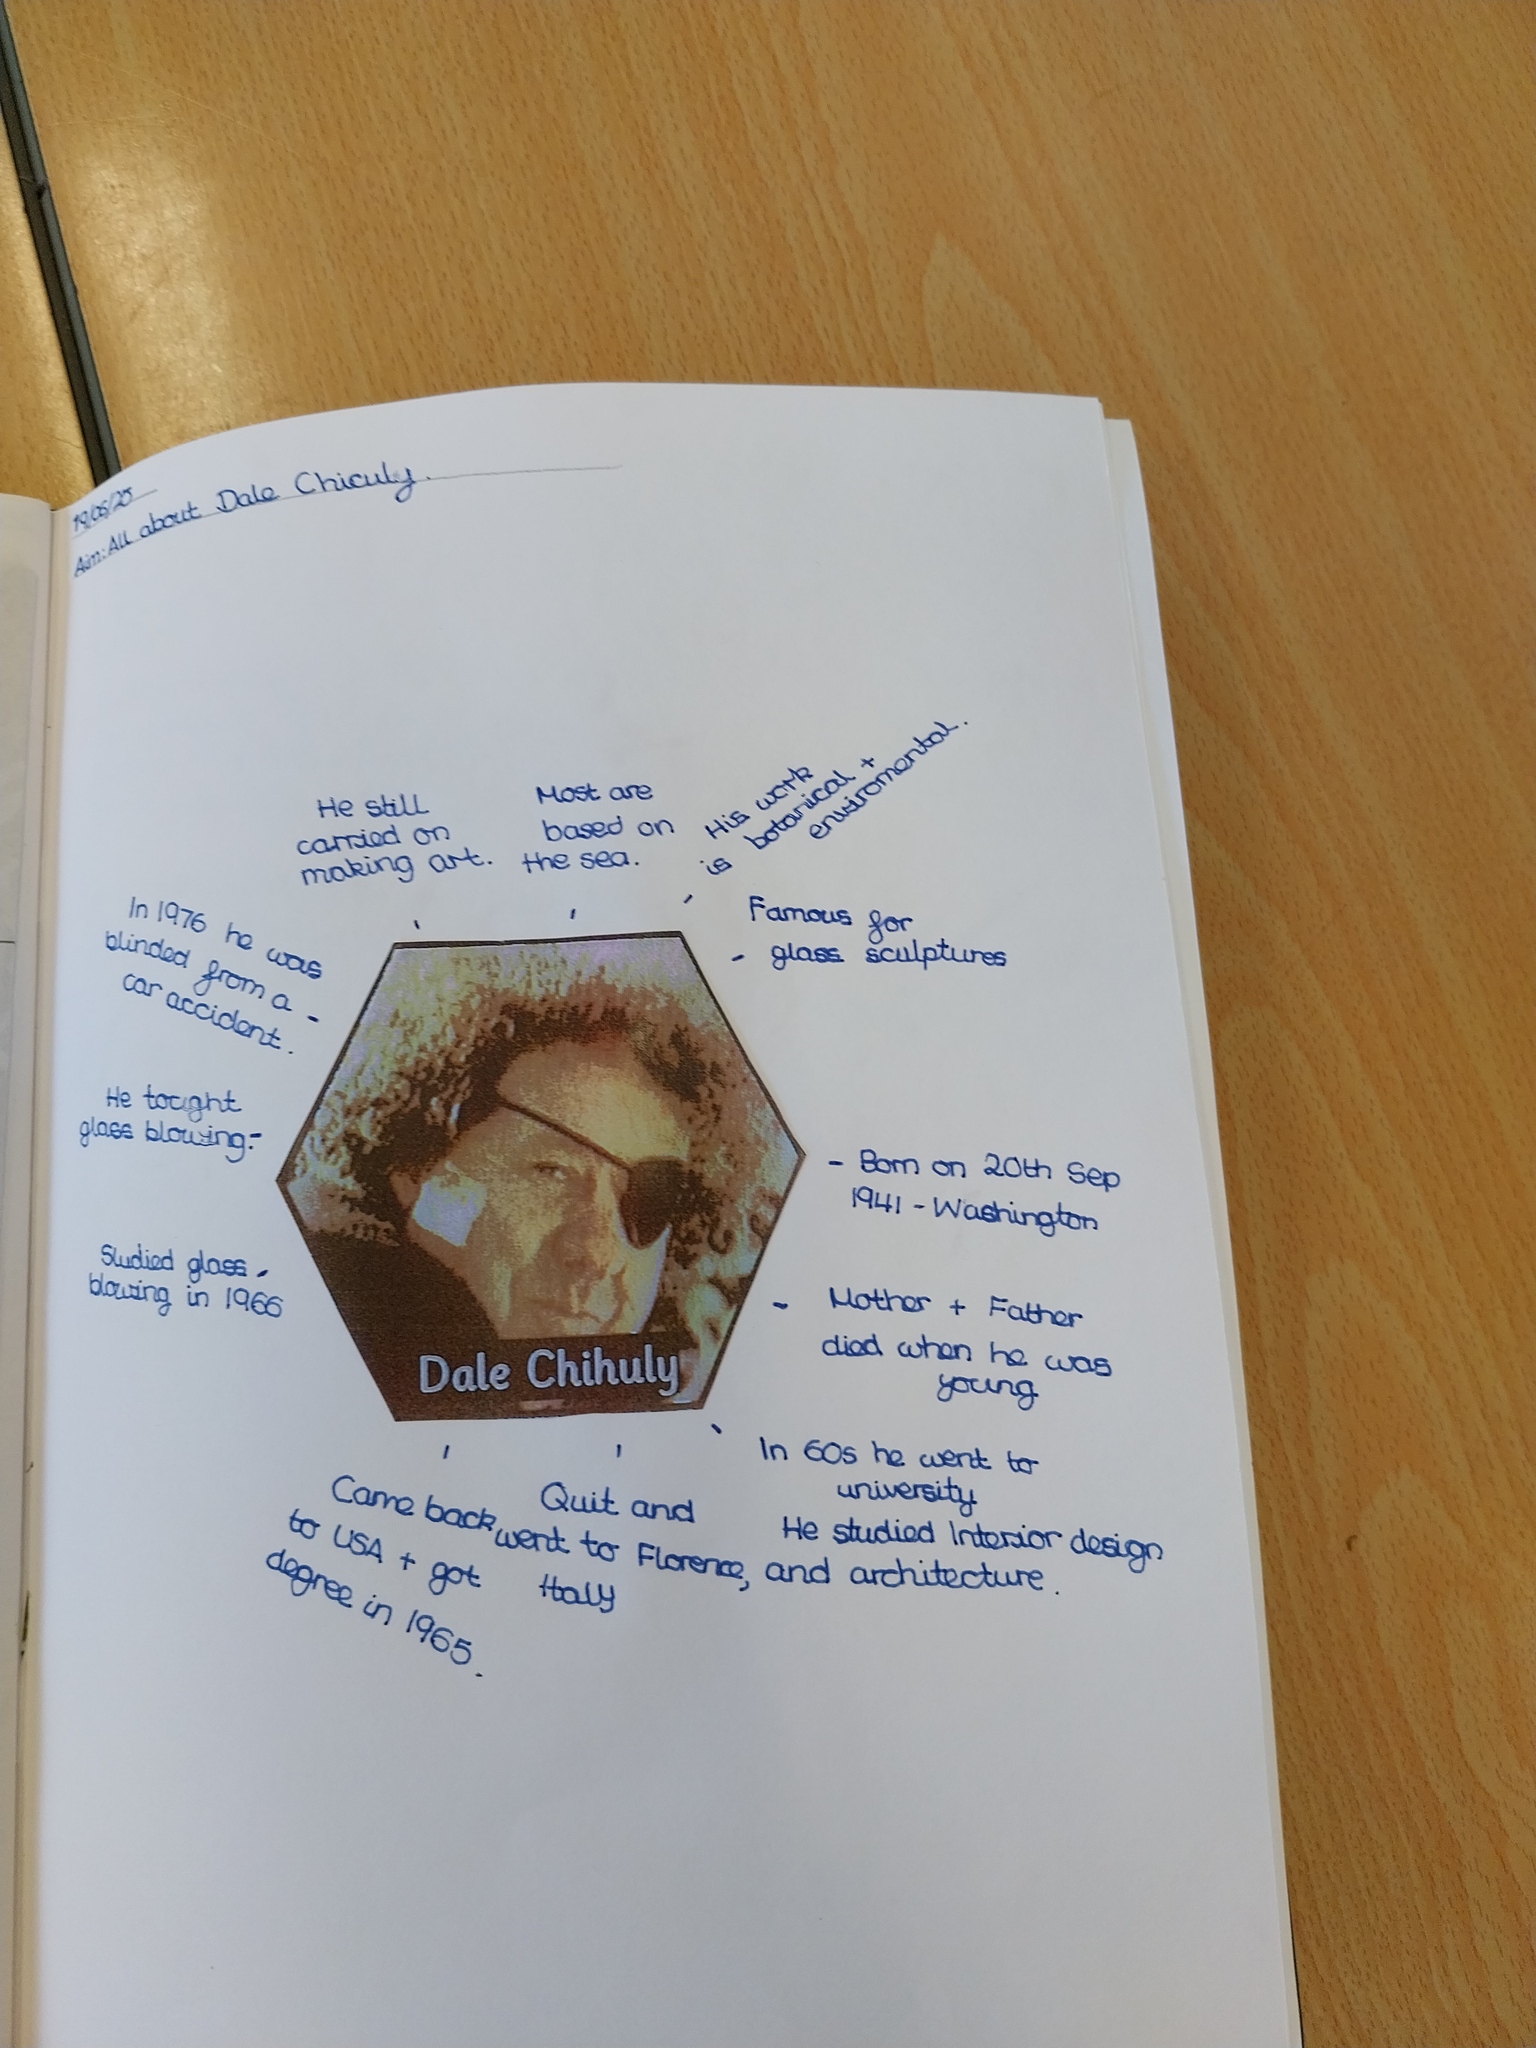 19/06/25
Aim: All about Dale Chiculy.
He still
carried on
making art.
Most are
based on
the sea.
His work
is botanical +
enviromental.
Famous for
- glass sculptures
- Born on 20th Sep
1941 - Washington
- Mother + Father
died when he was
young
In 60s he went to
university
He studied Interior design
and architecture.
Quit and
went to Florence,
Italy
Came back
to USA + got
degree in 1965.
Studied glass -
blowing in 1966
He tought
glass blowing -
In 1976 he was
blinded from a -
car accident.
Dale Chihuly